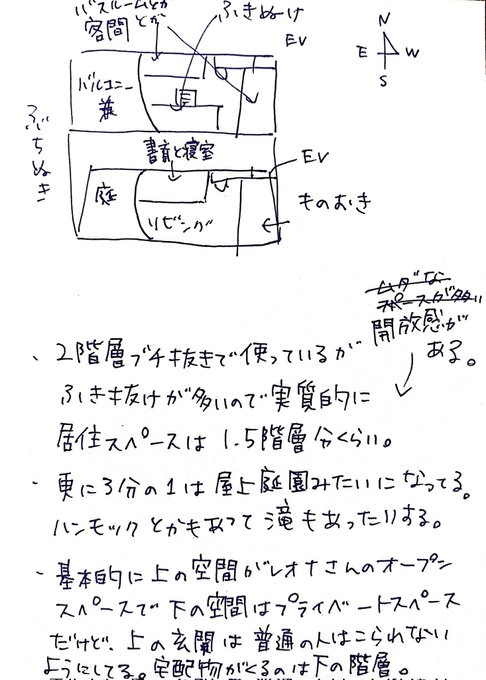 バスルームとか
客間とか
ふきぬけ
EV
N
E W
S
バルコニー
兼
ぶちぬき
書斎と寝室
EV
庭
リビング
ものおき
ムダな
スペースが多い
開放感が
ある。
、2階層ブチ抜きで使っているが
ふき抜けが多いので実質的に
居住スペースは1.5階層分くらい。
・更に3分の1は屋上庭園みたいになってる。
ハンモックとかもあって滝もあったりする。
・基本的に上の空間がレオナさんのオープン
スペースで下の空間はプライベートスペース
だけど、上の玄関は普通の人はこられない
ようにしてる。宅配物がくるのは下の階層。